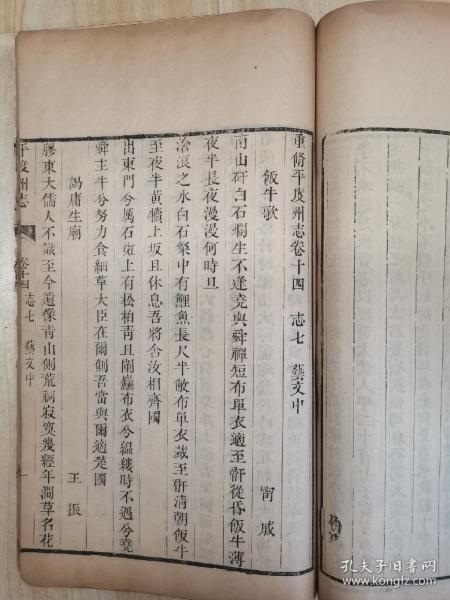 重脩平度州志卷十四 志七 藝文中
飯牛歌 甯戚
南山矸白石爛生不逢堯與舜禪短布單衣適至骭從昏飯牛薄
夜半長夜漫漫何時旦
滄浪之水白石粲中有鯉魚長尺半敝布單衣裁至骭清朝飯牛
至夜半黃犢上坂且休息吾將舍汝相齊國
出東門兮厲石斑上有松柏青且闌麤布衣兮縕縷時不遇兮堯
舜主牛兮努力食細草大臣在爾側吾當與爾適楚國
謁庸生廟 王振
膠東大儒人不識至今遺像靑山側荒祠寂寞幾經年澗草名花
平度州志 卷十四 志七 藝文中 一
孔夫子旧书网